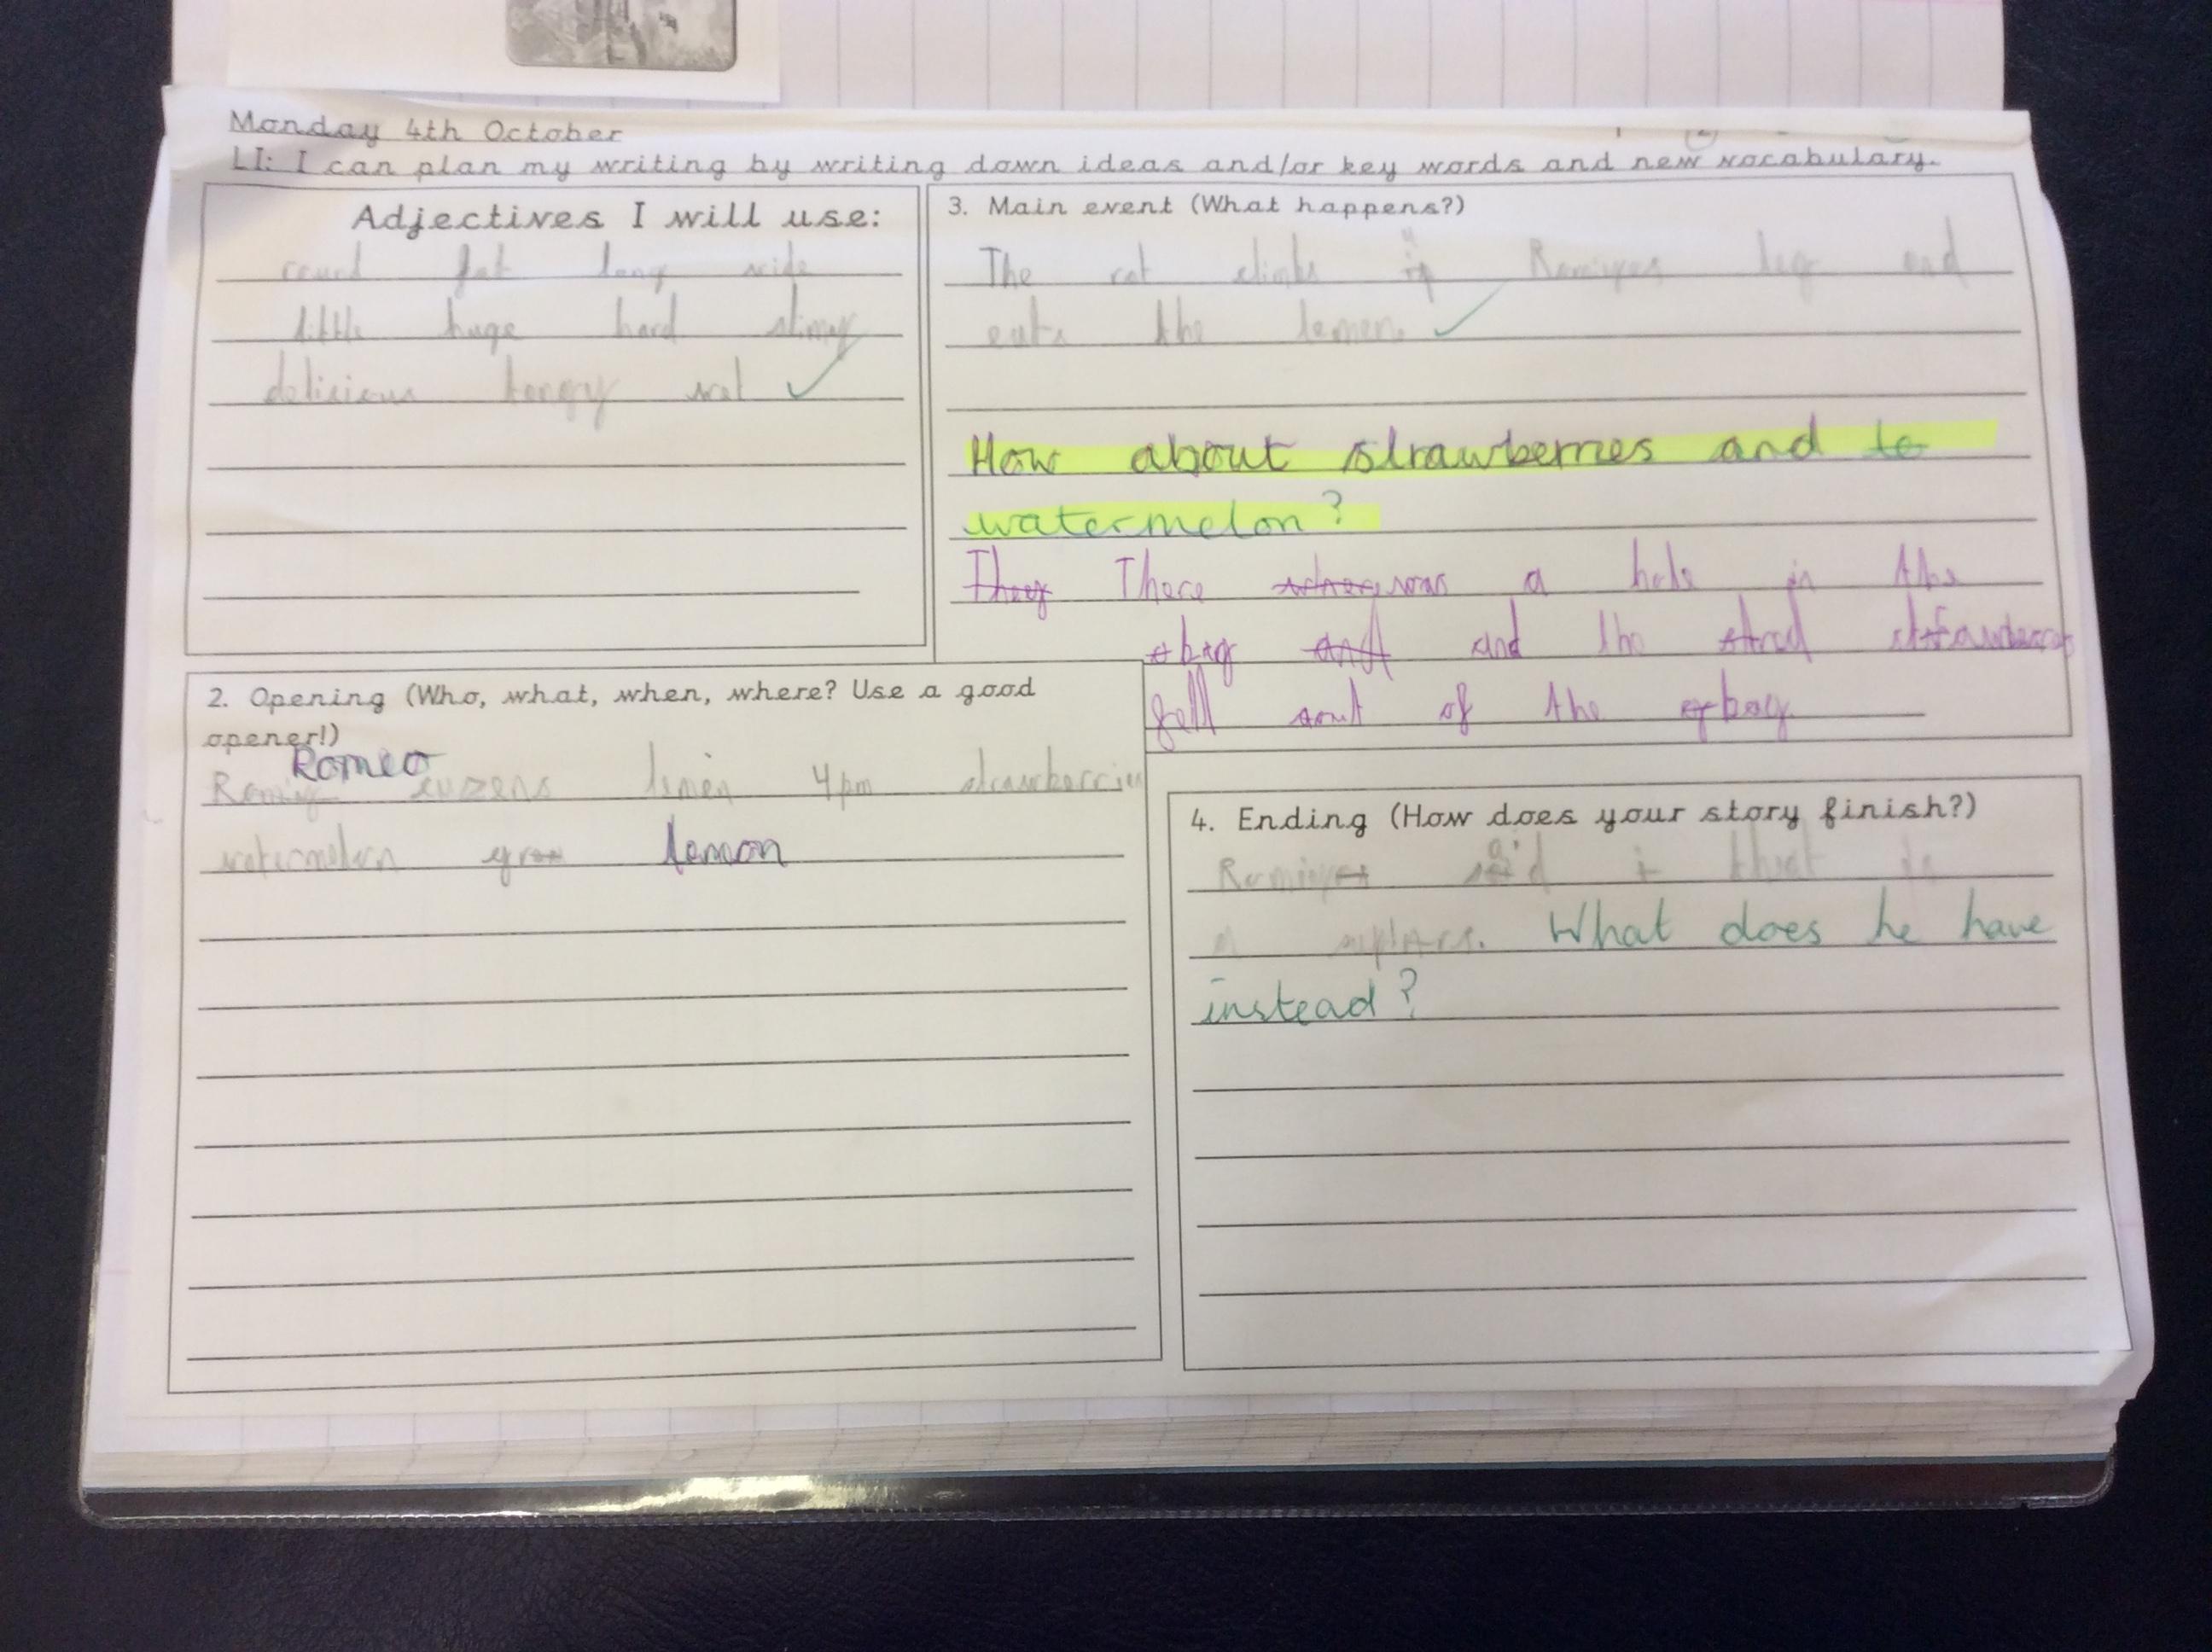 Monday 4th October
LI: I can plan my writing by writing down ideas and/or key words and new vocabulary.
Adjectives I will use:
round fat long wide
little huge hard slimy
delicious hongry wet
3. Main event (What happens?)
The rat climbs up leg and
eats the lemon.
How about strawberries and to
watermelon?
They There was a hole in the
bag and the
fell out of the bag
2. Opening (Who, what, when, where? Use a good
opener!)
Romeo
cuzens 4pm strawberries
watermelon lemon
4. Ending (How does your story finish?)
said i
What does he have
instead?